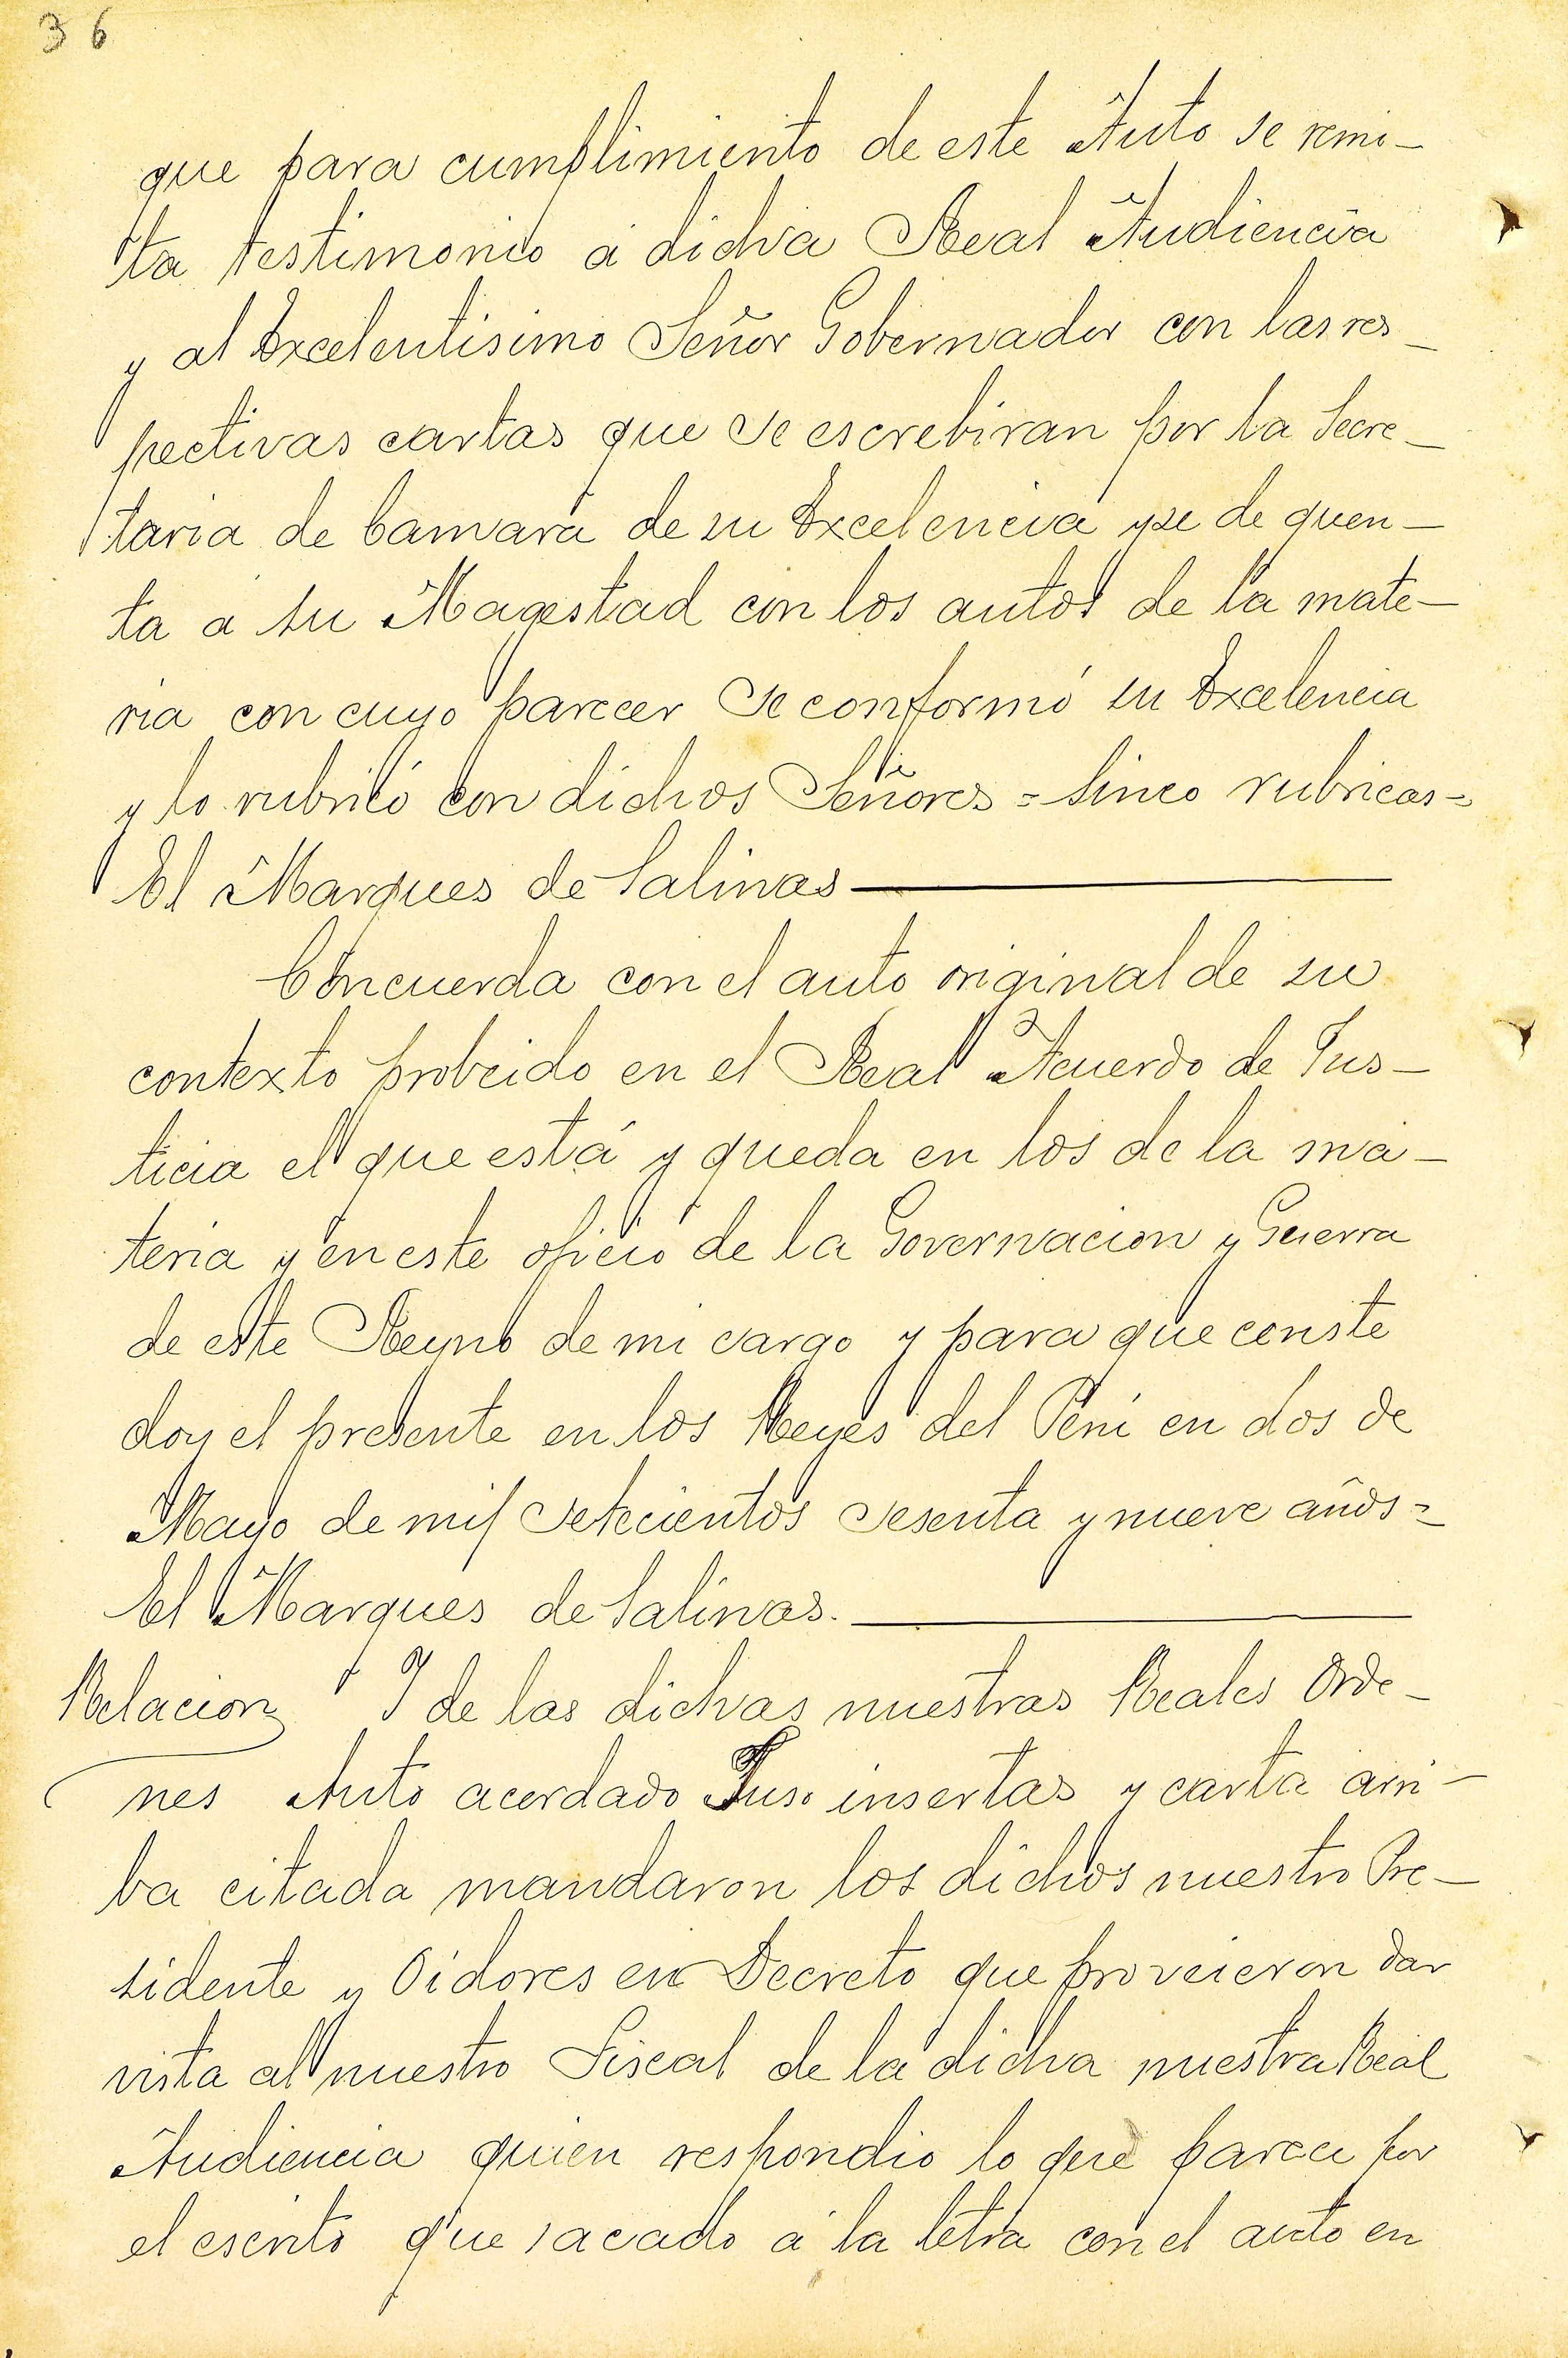 36
que para cumplimiento de este Auto se remi-
ta testimonio á dicha Real Audiencia
y al Excelentisimo Señor Gobernador con las res-
pectivas cartas que se escrebiran por la Secre-
taria de Camara de su Excelencia y se de quen-
ta á su Magestad con los autos de la mate-
ria con cuyo parecer se conformó su Excelencia
y lo rubricó con dichos Señores = Sinco rubricas =
El Marques de Salinas
Concuerda con el auto original de su
contexto probeido en el Real Acuerdo de Jus-
ticia el que está y queda en los de la ma-
teria y en este oficio de la Governacion y Guerra
de este Reyno de mi cargo y para que conste
doy el presente en los Reyes del Perú en dos de
Mayo de mil setecientos sesenta y nueve años =
El Marques de Salinas.
Relacion Y de las dichas nuestras Reales Orde-
nes Auto acordado Suso insertas y carta arri-
ba citada mandaron los dichos nuestro Pre-
sidente y Oidores en Decreto que proveieron dar
vista al nuestro Fiscal de la dicha nuestra Real
Audiencia quien respondio lo que parece por
el escrito que sacado á la letra con el auto en